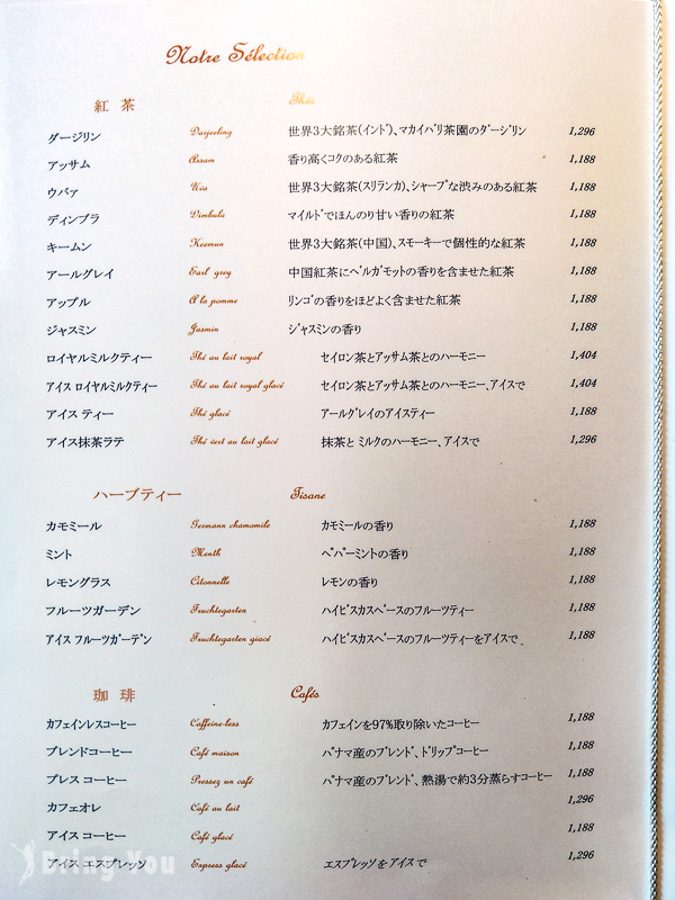 Notre Sélection
紅 茶 Thés
ダージリン Darjeeling 世界3大銘茶(インド)、マカイバリ茶園のダージリン 1,296
アッサム Assam 香り高くコクのある紅茶 1,188
ウバァ Uva 世界3大銘茶(スリランカ)、シャープな渋みのある紅茶 1,188
ディンブラ Dimbula マイルドでほんのり甘い香りの紅茶 1,188
キームン Keemun 世界3大銘茶(中国)、スモーキーで個性的な紅茶 1,188
アールグレイ Earl grey 中国紅茶にベルガモットの香りを含ませた紅茶 1,188
アップル A la pomme リンゴの香りをほどよく含ませた紅茶 1,188
ジャスミン Jasmin ジャスミンの香り 1,188
ロイヤルミルクティー Thé au lait royal セイロン茶とアッサム茶とのハーモニー 1,404
アイス ロイヤルミルクティー Thé au lait royal glacé セイロン茶とアッサム茶とのハーモニー、アイスで 1,404
アイス ティー Thé glacé アールグレイのアイスティー 1,188
アイス抹茶ラテ Thé vert au lait glacé 抹茶と ミルクのハーモニー、アイスで 1,296
ハーブティー Tisane
カモミール Germann chamomile カモミールの香り 1,188
ミント Menth ペパーミントの香り 1,188
レモングラス Citonnelle レモンの香り 1,188
フルーツガーデン Fruchtegarten ハイビスカスベースのフルーツティー 1,188
アイス フルーツガーデン Fruchtegarten giacé ハイビスカスベースのフルーツティーをアイスで 1,188
珈 琲 Cafés
カフェインレスコーヒー Caffeine-less カフェインを97%取り除いたコーヒー 1,188
ブレンドコーヒー Café maison パナマ産のブレンド、ドリップコーヒー 1,188
プレス コーヒー Pressez un café パナマ産のブレンド、熱湯で約3分蒸らすコーヒー 1,188
カフェオレ Café au lait 1,296
アイス コーヒー Café glacé 1,188
アイス エスプレッソ Express glacé エスプレッソをアイスで 1,296
Bring You